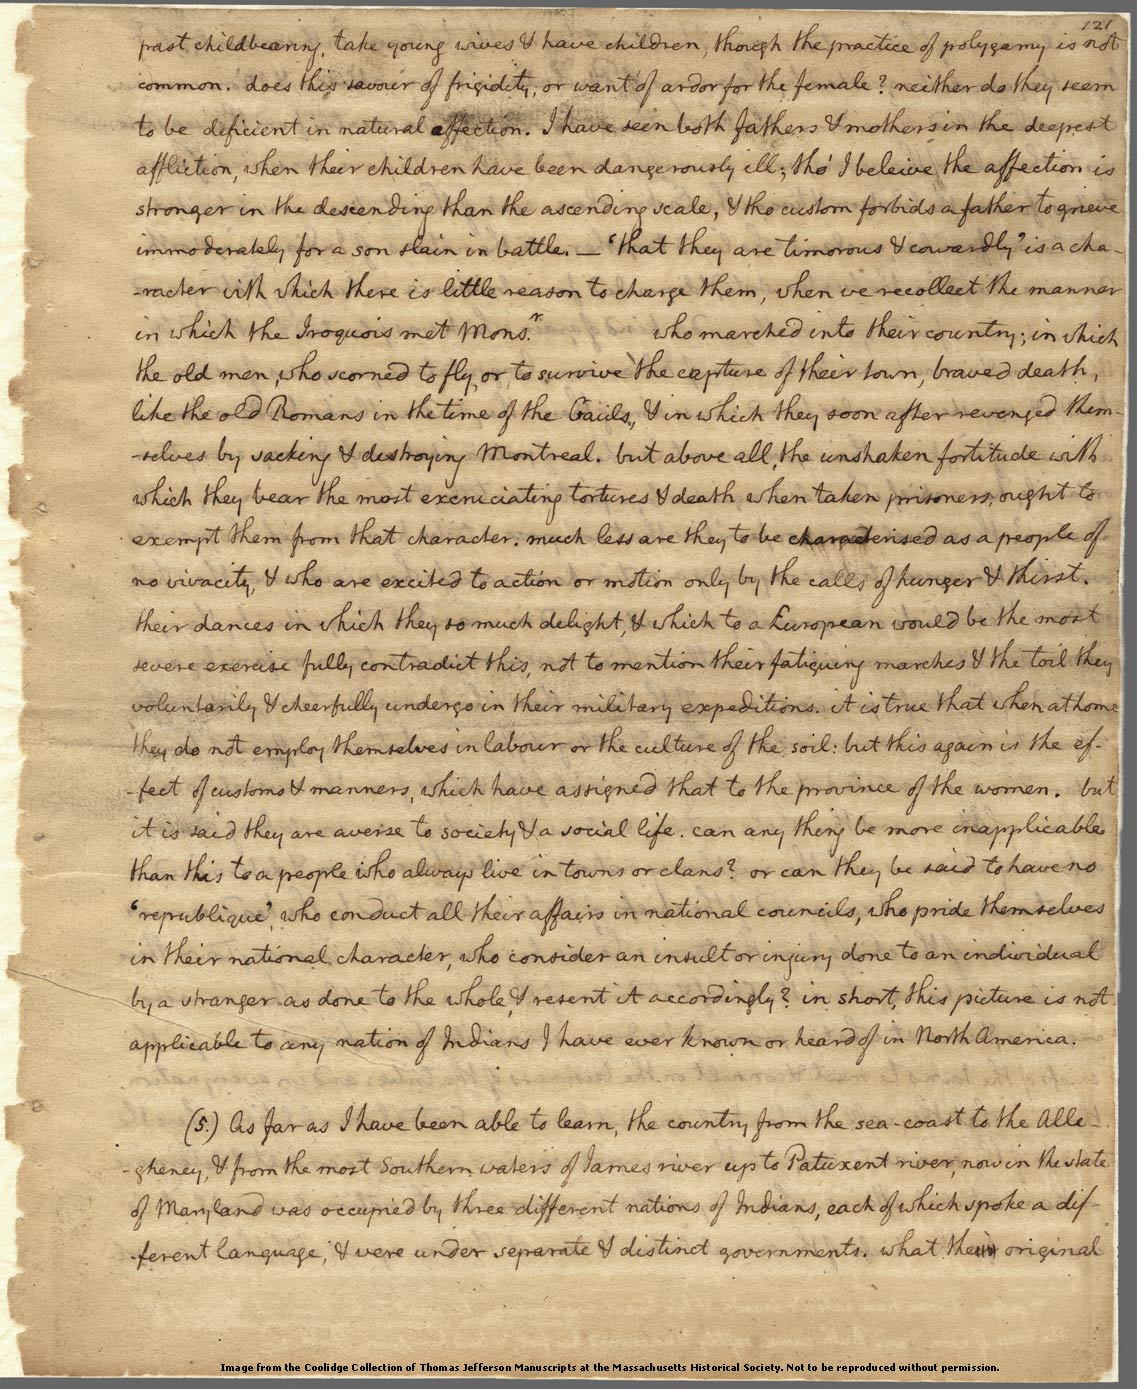 121
past childbearing, take young wives & have children, though the practice of polygamy is not
common. does this savour of frigidity, or want of ardor for the female? neither do they seem
to be deficient in natural affection. I have seen both fathers & mothers in the deepest
affliction, when their children have been dangerously ill; tho' I beleive the affection is
stronger in the descending than the ascending scale, & tho custom forbids a father to grieve
immoderately for a son slain in battle. — 'that they are timorous & cowardly' is a cha-
-racter with which there is little reason to charge them, when we recollect the manner
in which the Iroquois met Mons.r who marched into their country; in which
the old men, who scorned to fly, or to survive the capture of their town, braved death,
like the old Romans in the time of the Gauls, & in which they soon after revenged them-
-selves by sacking & destroying Montreal. but above all, the unshaken fortitude with
which they bear the most excruciating tortures & death when taken prisoners, ought to
exempt them from that character. much less are they to be characterised as a people of
no vivacity, & who are excited to action or motion only by the calls of hunger & thirst.
their dances in which they so much delight, & which to a European would be the most
severe exercise fully contradict this, not to mention their fatiguing marches & the toil they
voluntarily & chearfully undergo in their military expeditions. it is true that when at home
they do not employ themselves in labour or the culture of the soil: but this again is the ef-
-fect of customs & manners, which have assigned that to the province of the women. but
it is said they are averse to society & a social life. can any thing be more inapplicable
than this to a people who always live in towns or clans? or can they be said to have no
'republique', who conduct all their affairs in national councils, who pride themselves
in their national character, who consider an insult or injury done to an individual
by a stranger as done to the whole, & resent it accordingly? in short, this picture is not
applicable to any nation of Indians I have ever known or heard of in North America.
(5.) As far as I have been able to learn, the country from the sea-coast to the Alle-
-gheney, & from the most Southern waters of James river up to Patuxent river, now in the state
of Maryland was occupied by three different nations of Indians, each of which spoke a dif-
-ferent language, & were under separate & distinct governments. what their original
Image from the Coolidge Collection of Thomas Jefferson Manuscripts at the Massachusetts Historical Society. Not to be reproduced without permission.